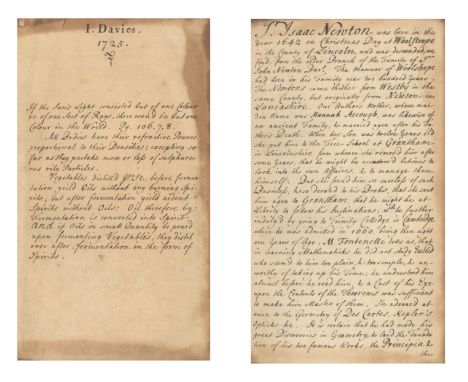 I. Davies.
1725.
If the Suns Light consisted but of one Colour
or of one Sort of Rays, there would be but one
Colour in the World. Pg. 106,7,8
All Bodies have their refractive Powers
proportional to their Densities; excepting so
far as they partake more or less of sulphureous
oily Particles.
Vegetables distilled before fermentation
yield Oils without any burning Spirits,
but after fermentation yield ardent
Spirits without Oils: Oil therefore by
Fermentation is converted into Spirit.
And if Oils in small Quantity be poured
upon fermenting Vegetables, they distil
over after fermentation in the form of
Spirits.
Sr. Isaac Newton, was born in the
year 1642 on Christmas Day at Woolstrope
in the County of Lincoln, and was descended,
from the elder Branch of the Family of Sr.
John Newton Bart. The Mannor of Woolstrope
had been in his Family near two hundred Years.
The Newtons came thither from Westby in the
same County, but originally from Newton in
Lancashire. Our Authors Mother, whose maiden
Name was Hannah Ascough, was likewise of
an ancient Family, he married again after his Fathers
Death. When her Son was twelve Years old
she put him to the Free-School at Grantham,
in Lincolnshire, from where she removed him after
some Years, that he might be betimes to
look into his own Affairs, & to manage them
himself. But she found him so careless of such
Business, & so devoted to his Books, that she sent
him again to Grantham that he might be at
Liberty to follow his Inclinations; he further
indulg'd by going to Trinity Colledge in Cambridge
which he was admitted in 1660, being then eighteen
Years of Age. M. Fontenelle tells us, that
in learning Mathematicks he did not study Euclid
who seem'd to him too plain, & too simple, & unworthy
of taking up his Time; he understood him
almost before he read him, & a Cast of his Eye
upon the Contents of the Theorems was sufficient
to make him Master of them. He advanced at
once to the Geometry of Des Cartes, Kepler's
Opticks &c. It is certain that he had made his
great Discoveries in Geometry, & laid the Foundation
of his two famous Works, the Principia, &
the